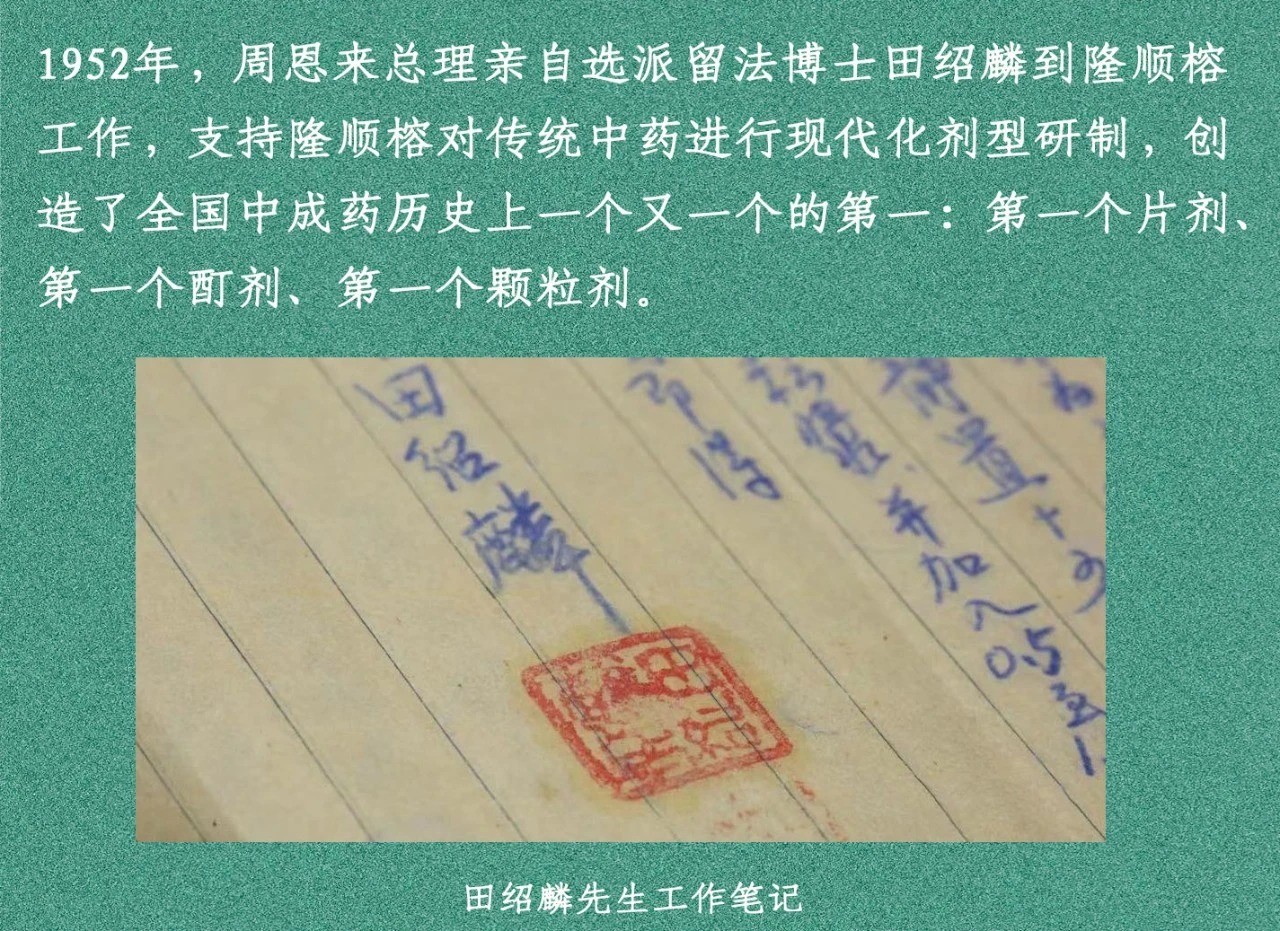 1952年，周恩来总理亲自选派留法博士田绍麟到隆顺榕
工作，支持隆顺榕对传统中药进行现代化剂型研制，创
造了全国中成药历史上一个又一个的第一：第一个片剂、
第一个酊剂、第一个颗粒剂。
并加入0.5至1
即得
田绍麟
田绍麟先生工作笔记